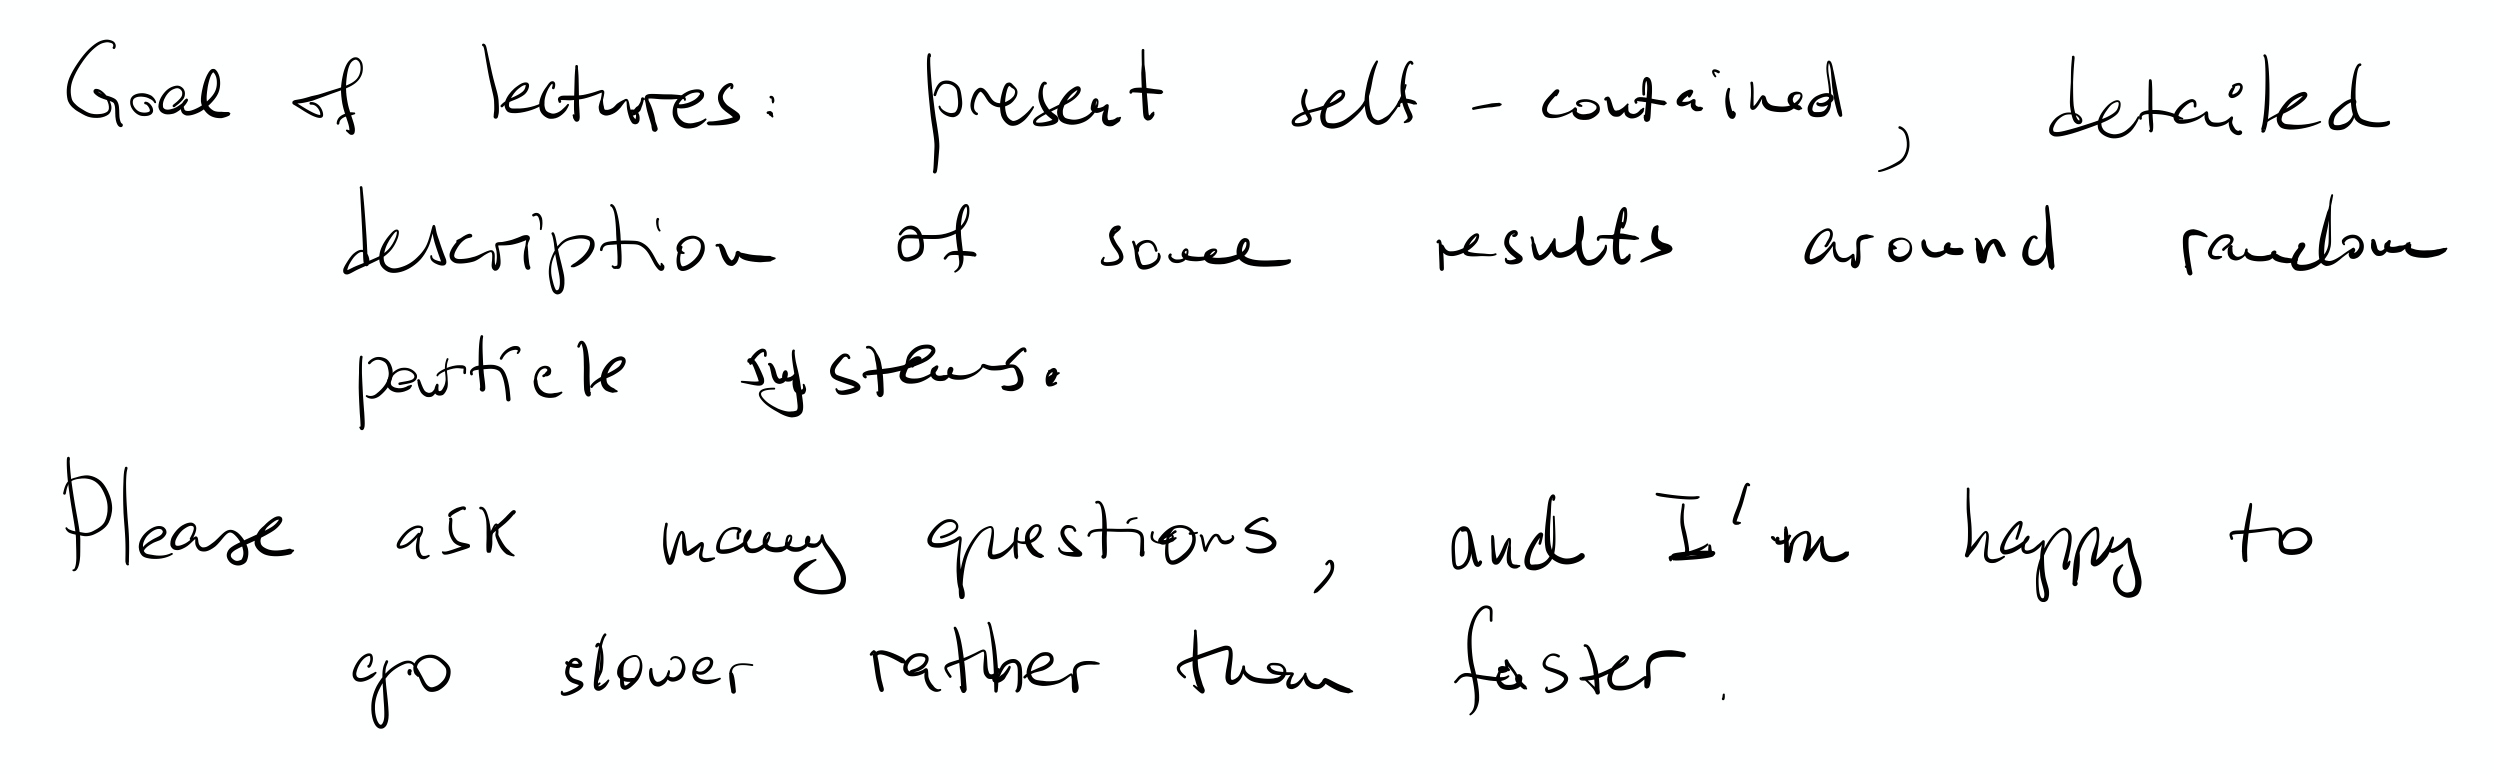 Goal of lectures : present self-contained, detailed
description of some results around random
particle systems.
Please ask many questions, and I'm happy to
go slower rather than faster.